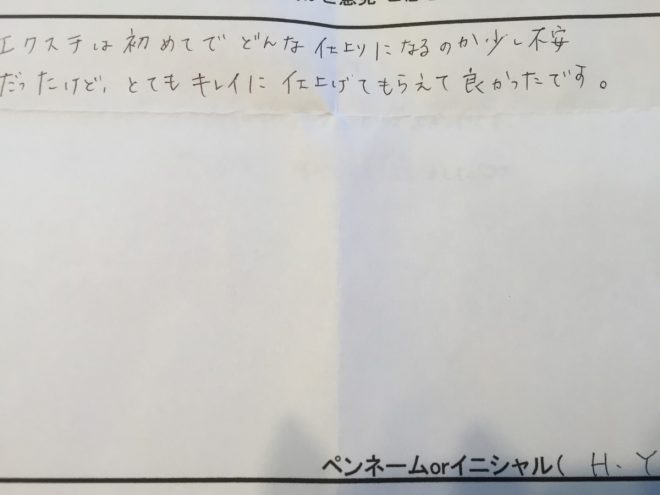 エクステは初めてでどんな仕上りになるのか少し不安
だったけど、とてもキレイに仕上げてもらえて良かったです。
ペンネームorイニシャル( H.Y